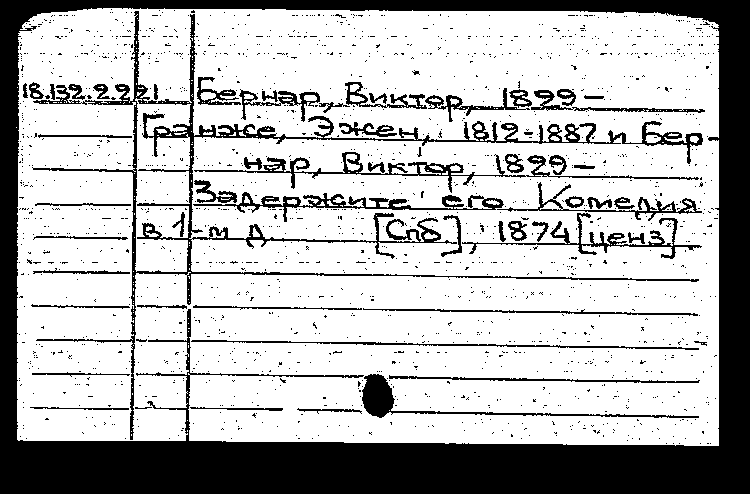 18.132.2.221 Бернар, Виктор, 1829 –
Гранже, Эжен, 1812-1887 и Бер-
нар, Виктор, 1829 –
Задержите его. Комедия
в 1-м д. [Спб], 1874 [ценз].